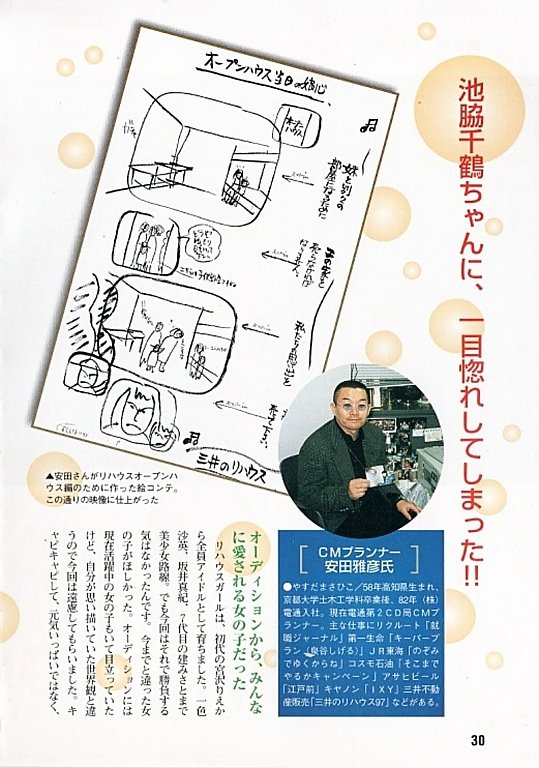 池脇千鶴ちゃんに、一目惚れしてしまった!!
オープンハウス当日の
妹と別々の
部屋になるために
この家を
売らなければ
なりません。
私たちの思い出を
三井のリハウス
▲安田さんがリハウスオープンハ
ウス編のために作った絵コンテ。
この通りの映像に仕上がった
CMプランナー
安田雅彦氏
●やすだまさひこ/58年高知県生まれ、
京都大学土木工学科卒業後、82年(株)
電通入社。現在電通第2CD局CMプ
ランナー。主な仕事にリクルート「就
職ジャーナル」第一生命「キーパープ
ラン(泉谷しげる)」JR東海「のぞみ
でゆくからね」コスモ石油「そこまで
やるかキャンペーン」アサヒビール
「江戸前」キヤノン「IXY」三井不動
産販売「三井のリハウス97」などがある。
オーディションから、みんな
に愛される女の子だった
リハウスガールは、初代の宮沢りえか
ら全員アイドルとして育ちました。一色
紗英、坂井真紀、7代目の建みさとまで
美少女路線。でも今回はそれで勝負する
気はなかったんです。今までと違った女
の子がほしかった。オーディションには
現在活躍中の女の子もいて目立っていた
けど、自分が思い描いていた世界観と違
うので今回は遠慮してもらいました。キ
ャピキャピして、元気いっぱいではなく、
30